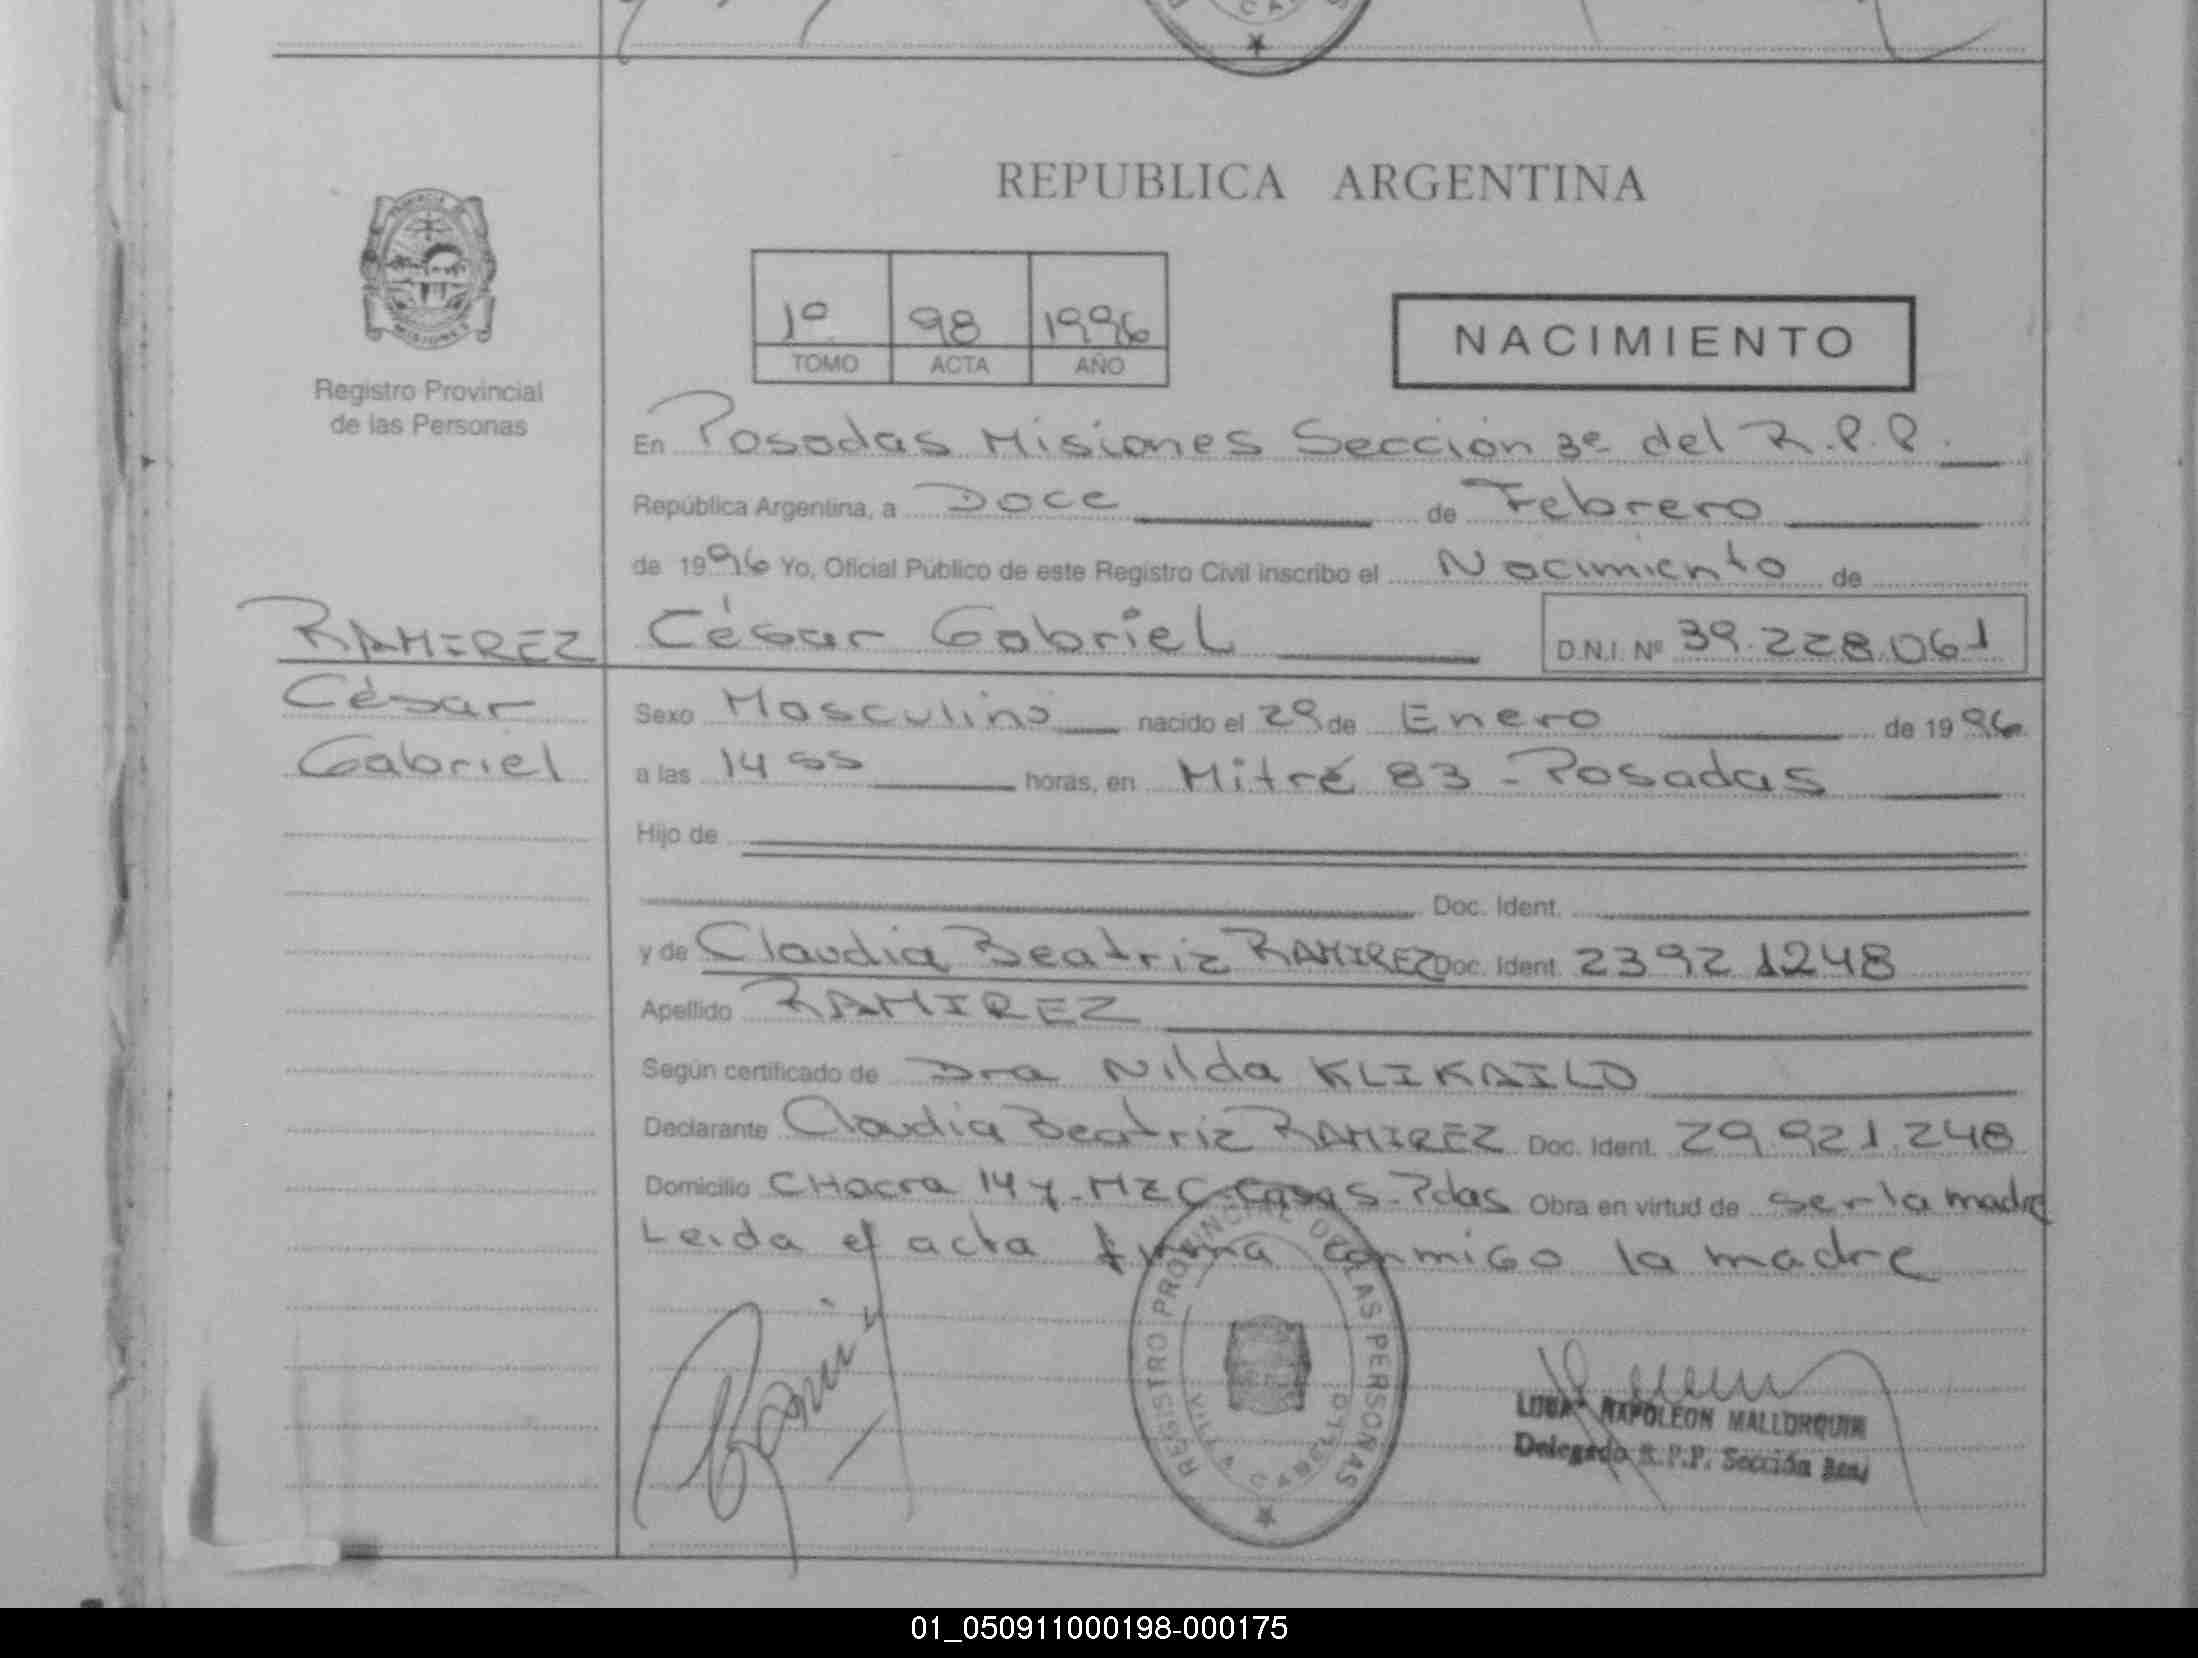 REPUBLICA ARGENTINA
1º 98 1996
TOMO ACTA AÑO
NACIMIENTO
Registro Provincial
de las Personas
En Posadas Misiones Sección 3º del R.P.P.
República Argentina, a Doce de Febrero
de 1996 Yo, Oficial Público de este Registro Civil inscribo el Nacimiento de
RAMIREZ César Gabriel D.N.I. Nº 39.228.061
César
Gabriel
Sexo Masculino nacido el 29 de Enero de 1996
a las 14 55 horas, en Mitre 83 - Posadas
Hijo de
Doc. Ident.
y de Claudia Beatriz RAMIREZ Doc. Ident. 23921248
Apellido RAMIREZ
Según certificado de Dra Nilda KLIKAILO
Declarante Claudia Beatriz RAMIREZ Doc. Ident. 29.921.248
Domicilio CHacra 147-MZ C-Casa 5-Pdas Obra en virtud de ser la madre
Leida el acta firma conmigo la madre
REGISTRO PROVINCIAL DE LAS PERSONAS
VILLA CABELLO
NAPOLEON MALLORQUIN
Delegado R.P.P. Sección 3era
01_050911000198-000175